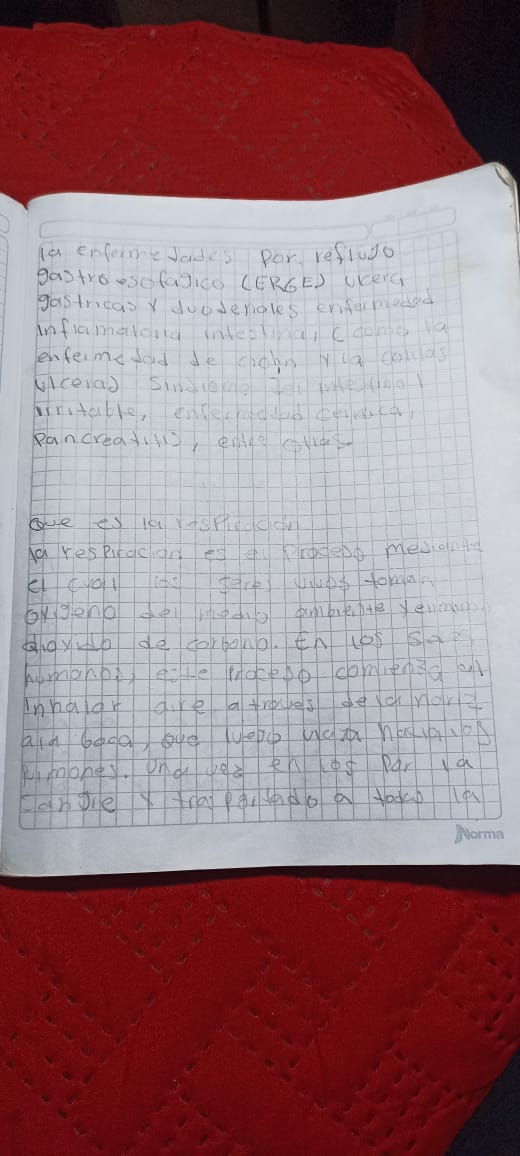 la enfermedades por reflujo
gastro esofagico (ERGE) ulcera
gastricas y duodenales enfermedad
inflamatoria intestinal, (como la
enfermedad de crohn y la colitas
ulcera) Sindrome del intestinal
irritable, enfermedad celiaca,
pancreatitis, entre otras.
que es la respiracion
la respiracion es el proceso mediante
el cual los seres vivos toman
oxigeno del medio ambiente y
dioxido de carbono. En los
humanos, este proceso comienza al
inhalar aire a traves de la nariz
ala boca, que luego hasta los
pulmones. Una vez en los por la
sangre y a todas la
Norma